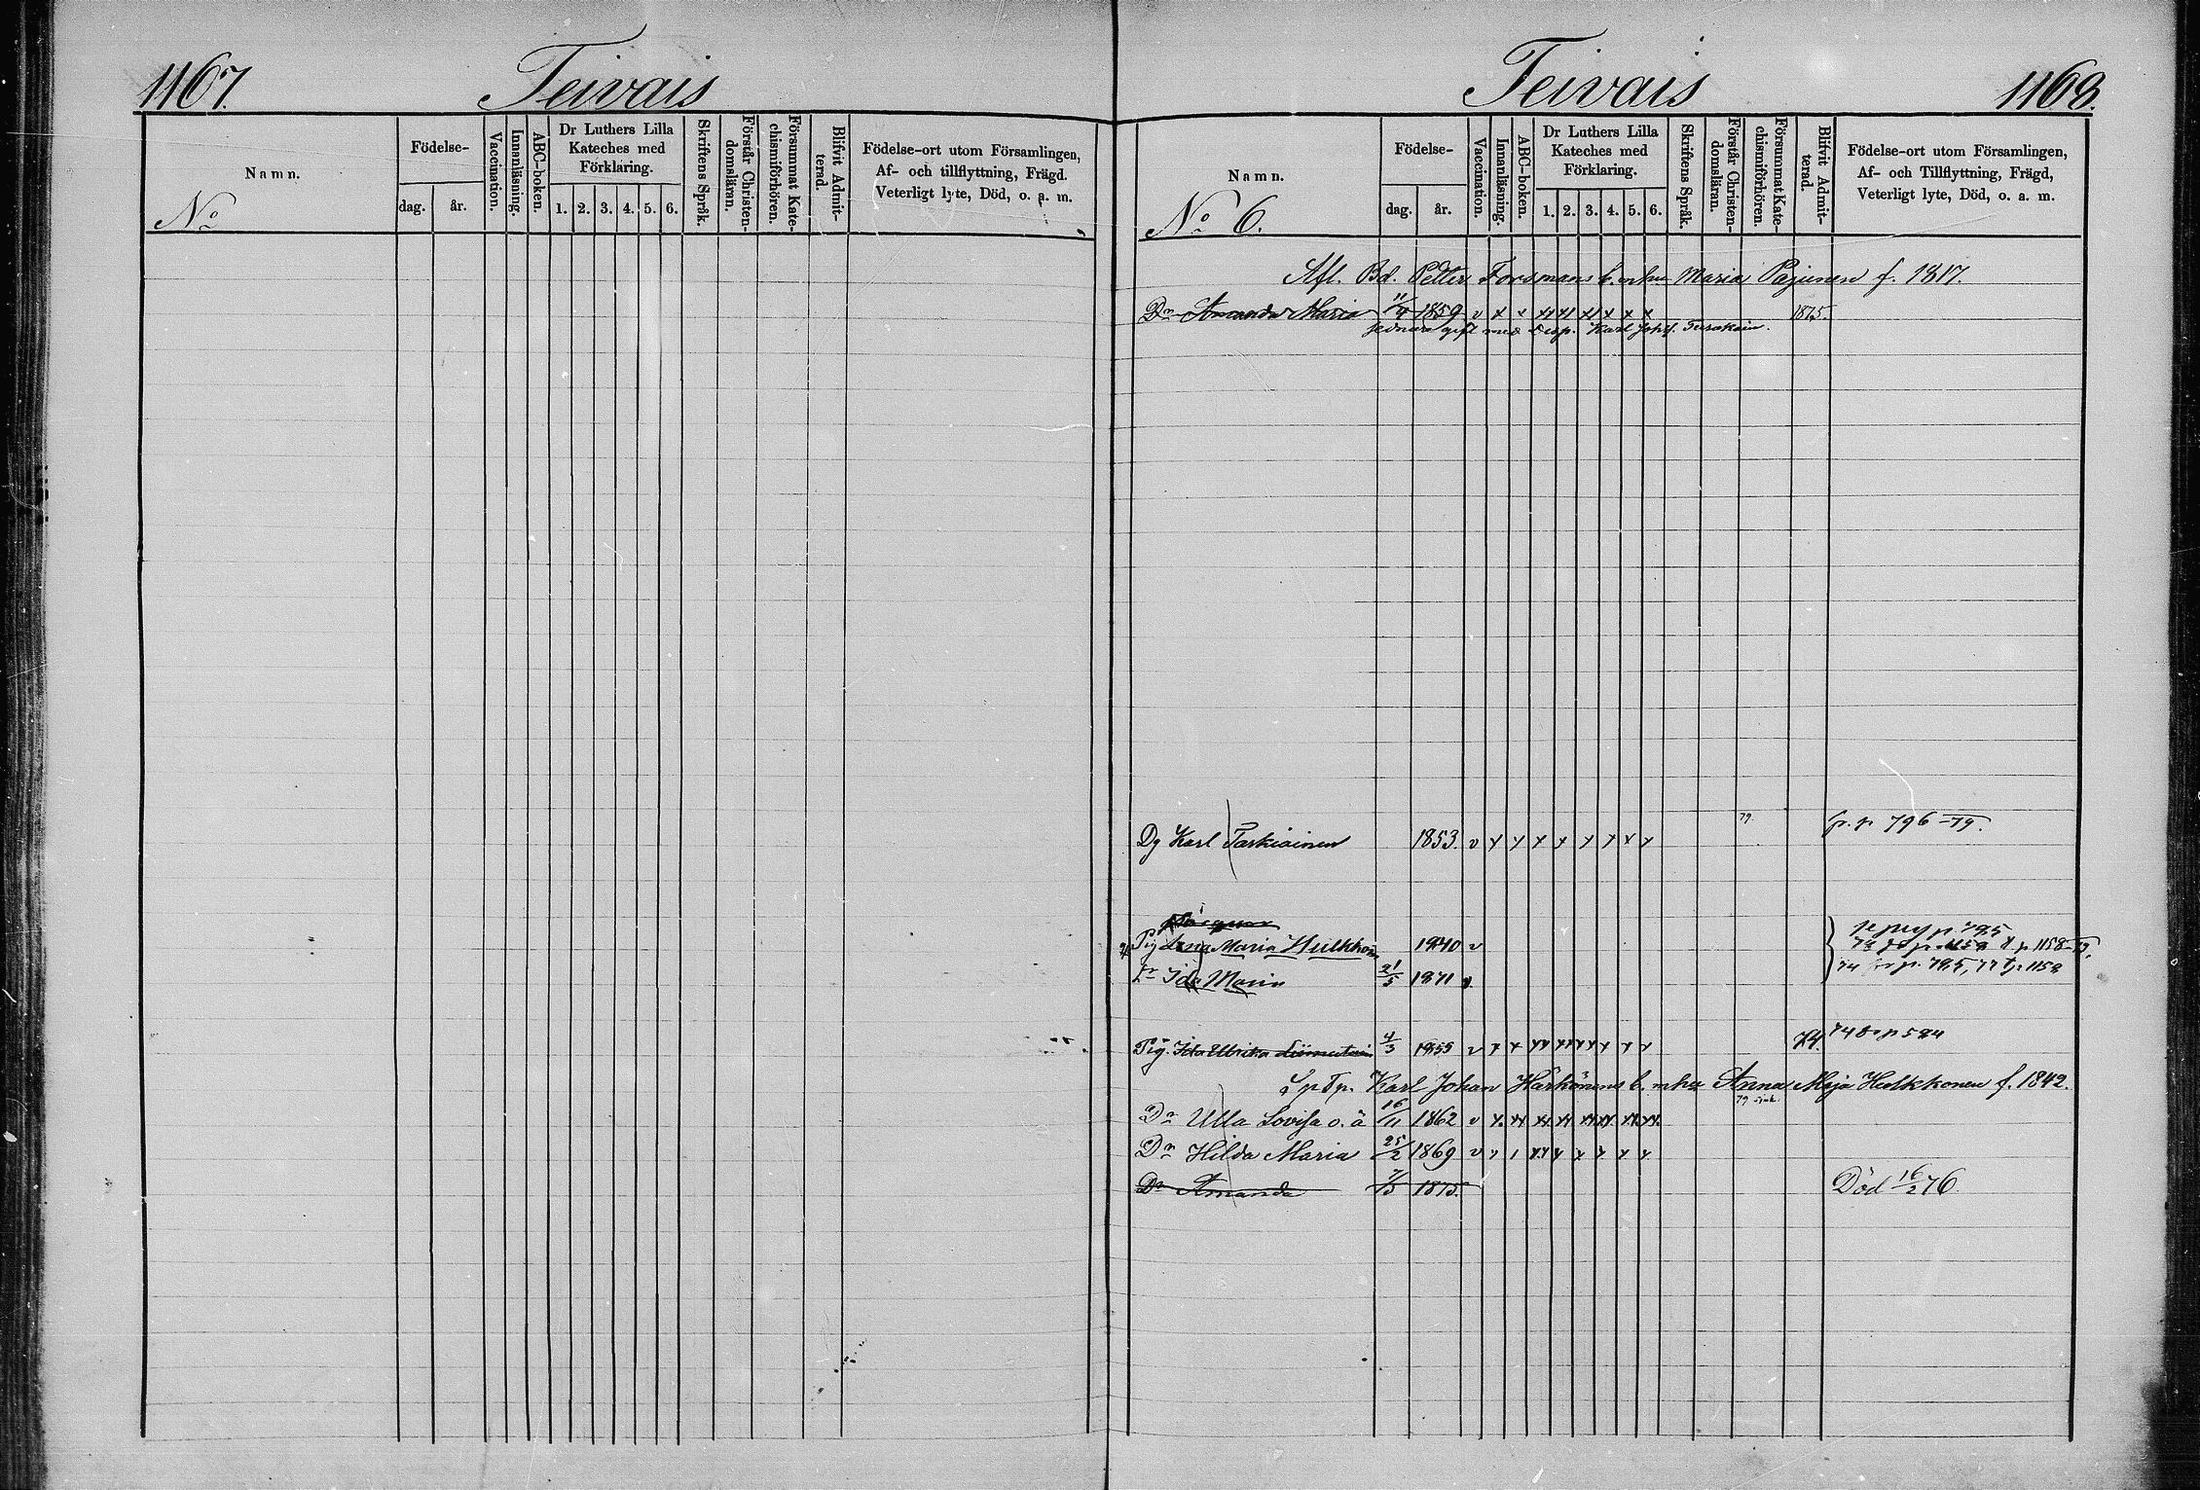 1167. Teivais
Namn.
No
Födelse-
dag. år.
Vaccination.
Innanläsning.
ABC-boken.
Dr Luthers Lilla
Kateches med
Förklaring.
1. 2. 3. 4. 5. 6.
Skriftens Språk.
Förstår Christen-
domsläran.
Försummat Kate-
chismiförhören.
Blifvit Admit-
terad.
Födelse-ort utom Församlingen,
Af- och tillflyttning, Frägd.
Veterligt lyte, Död, o. a. m.
Teivais 1168.
Namn.
No 6.
Födelse-
dag. år.
Vaccination.
Innanläsning.
ABC-boken.
Dr Luthers Lilla
Kateches med
Förklaring.
1. 2. 3. 4. 5. 6.
Skriftens Språk.
Förstår Christen-
domsläran.
Försummat Kate-
chismiförhören.
Blifvit Admit-
terad.
Födelse-ort utom Församlingen,
Af- och Tillflyttning, Frägd,
Veterligt lyte, Död, o. a. m.
Afl. Bd. Petter Forsmans b. enka Maria Pajunen f. 1817.
Dr Amanda Maria 11/4 1859 v x x xx xx xx x x x 1875.
gift med Karl Joh.
Dg Karl Tarkiainen 1853. v x x x x x x x x 79. p. 796-79.
Pig Lena Maria Hulkkonen 1840 v p. 1158-79.
Dr Ida Maria 21/5 1871 v 74 p. 785, 77 p. 1158
Pig. Ida Ulrika 4/3 1855 v x x xx xx xx x x x 74. 74 p 584
Karl Johan Härkönens b. Anna Maja Hulkkonen f. 1842.
Dr Ulla Lovisa o. ä 16/11 1862 v x. xx xx xx xx xx xx xx. 79
Dr Hilda Maria 25/2 1869 v
Dr Amanda 7/3 1875. Död 16/2 76.